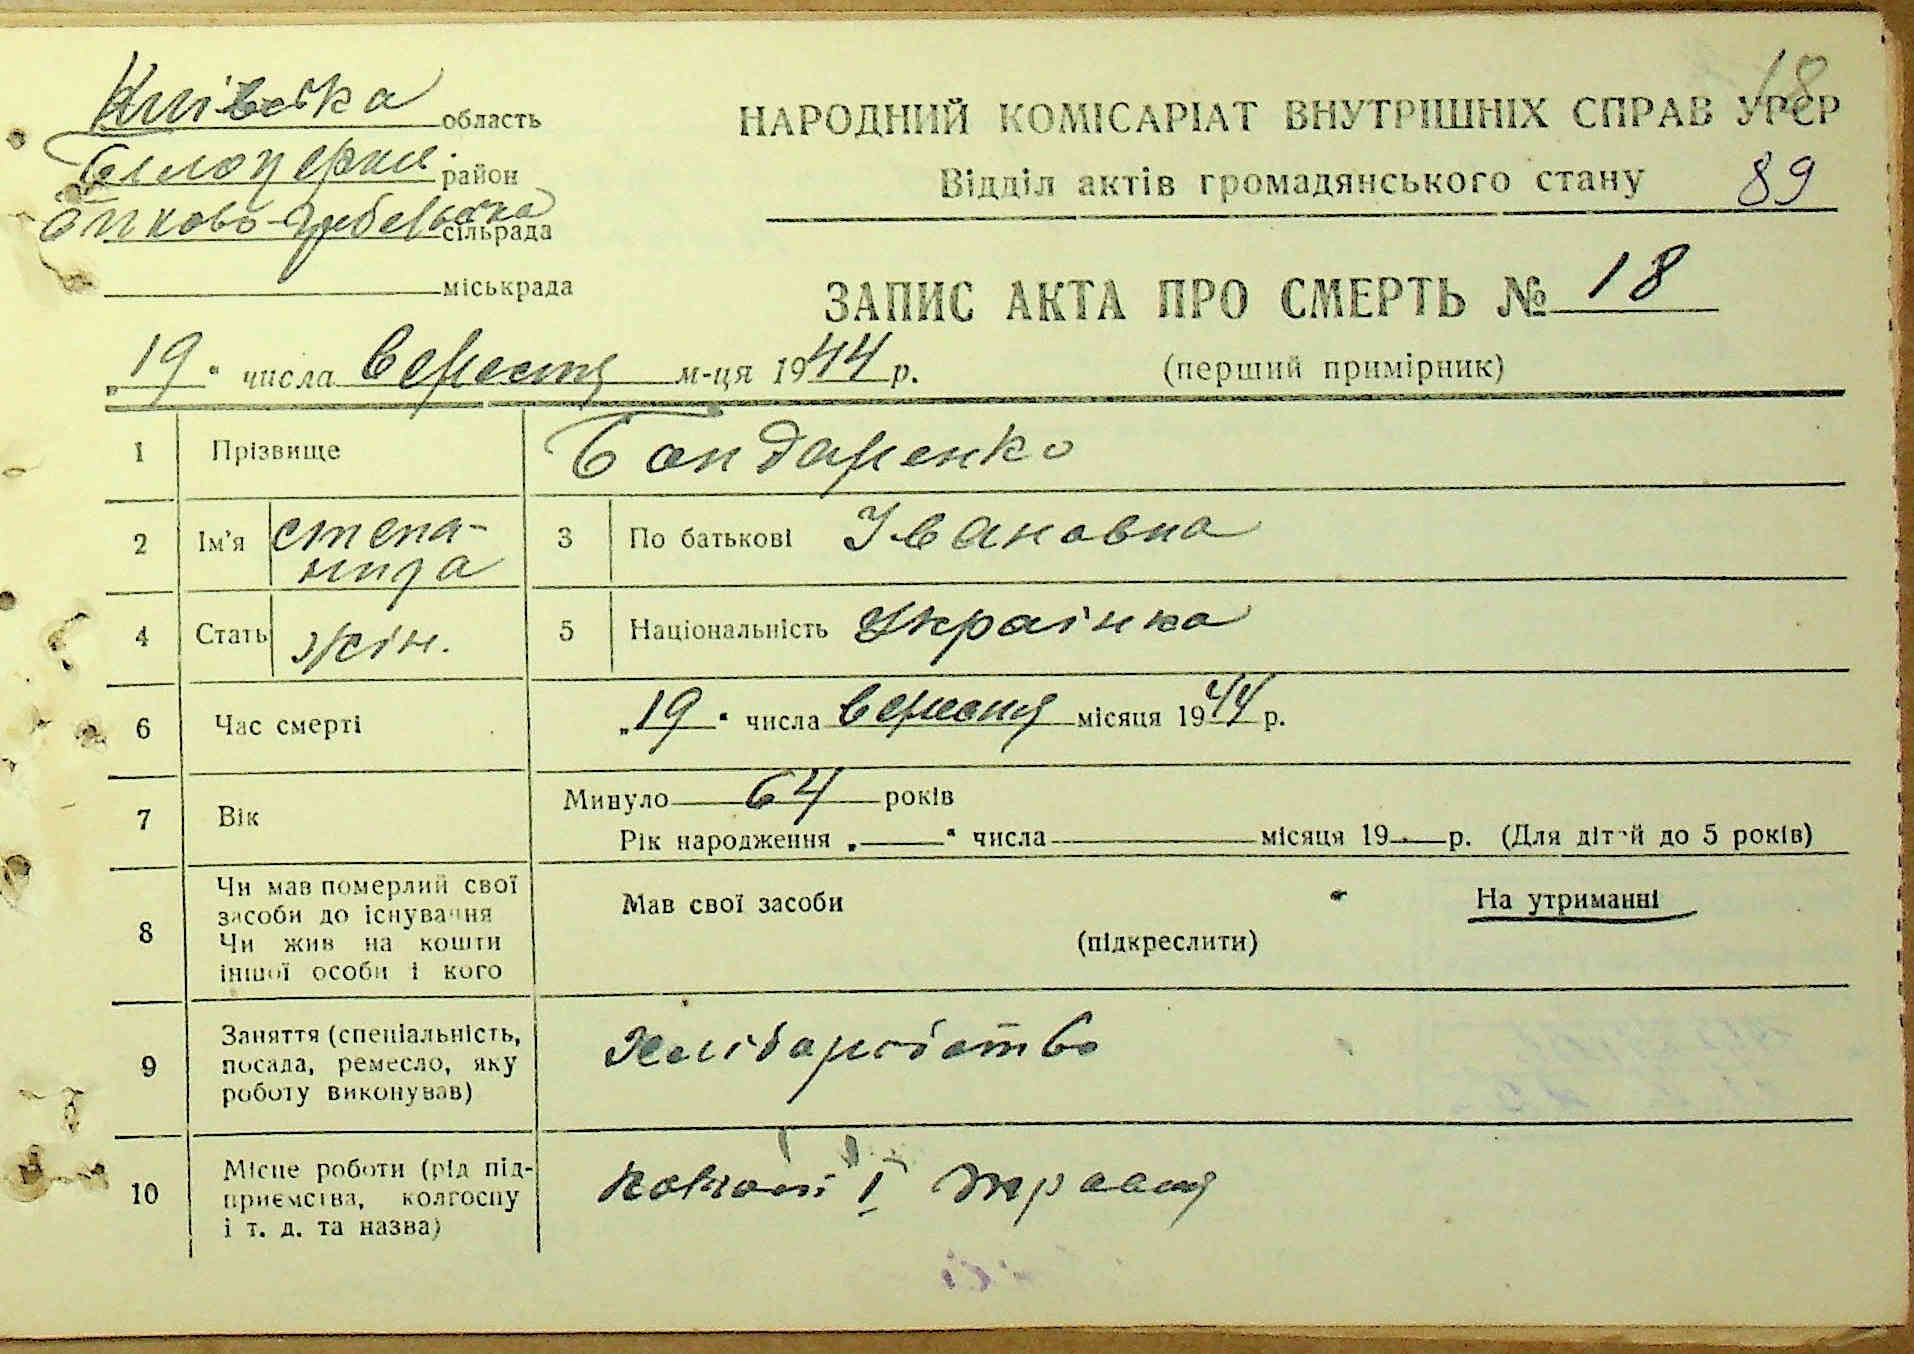 18
Київська область
Білоцеркі. район
сільрада
міськрада
НАРОДНИЙ КОМІСАРІАТ ВНУТРІШНІХ СПРАВ УРСР
Відділ актів громадянського стану 89
ЗАПИС АКТА ПРО СМЕРТЬ № 18
(перший примірник)
„19“ числа вересня м-ця 1944 р.
1 Прізвище Бондаренко
2 Ім'я Степа-
нида
3 По батькові Івановна
4 Стать жін.
5 Національність Українка
6 Час смерті „19“ числа вересня місяця 1944 р.
7 Вік Минуло 64 років
Рік народження „ “ числа місяця 19 р. (Для дітей до 5 років)
8 Чи мав померлий свої
засоби до існування
Чи жив на кошти
іншої особи і кого
Мав свої засоби На утриманні
(підкреслити)
9 Заняття (спеціальність,
посада, ремесло, яку
роботу виконував)
Хліборобство
10 Місце роботи (рід під-
приємства, колгоспу
і т. д. та назва)
Колгосп 1 Травня